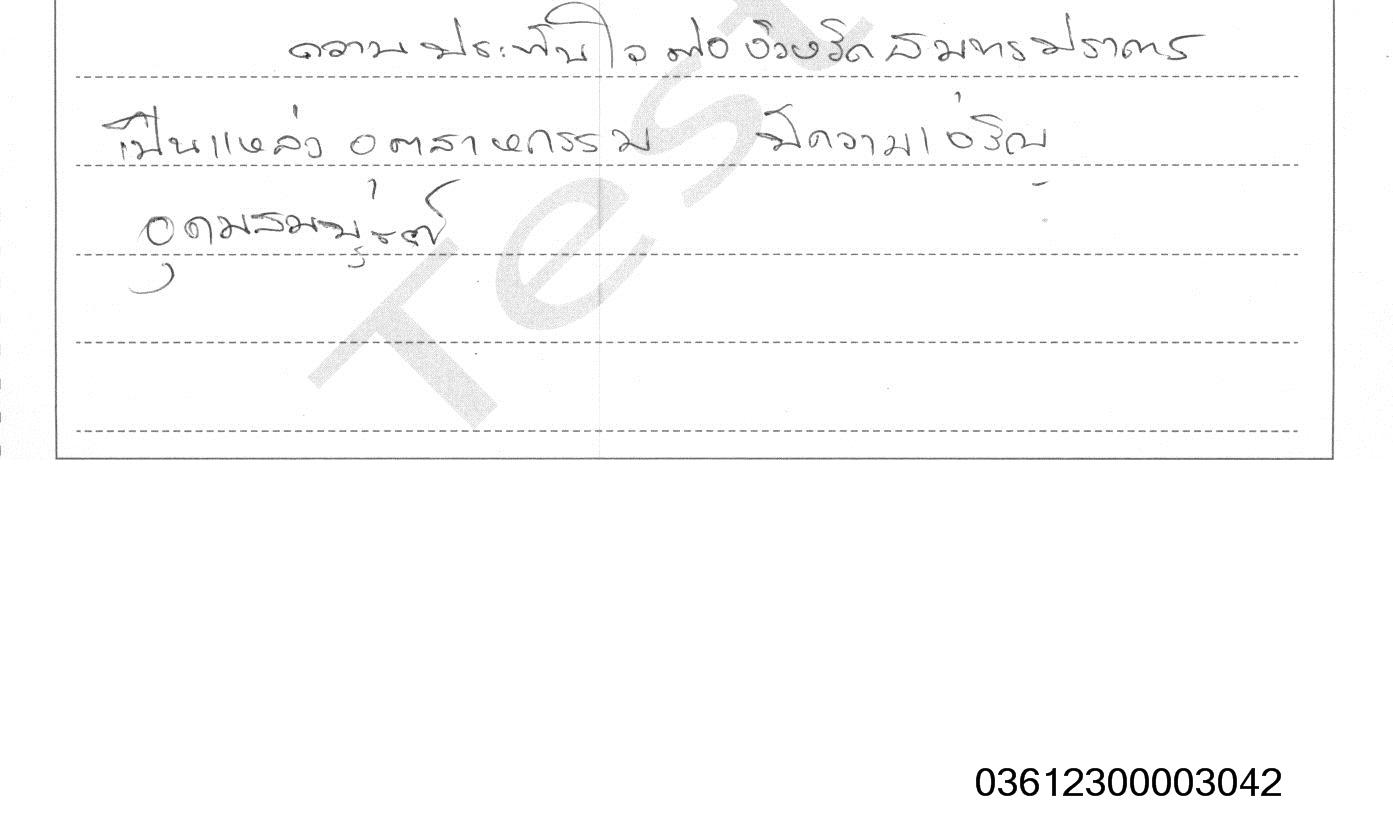 ความประทับใจต่อจังหวัดสมุทรปราการ
เป็นแหล่งอุตสาหกรรม มีความเจริญ
อุดมสมบูรณ์
Test
03612300003042